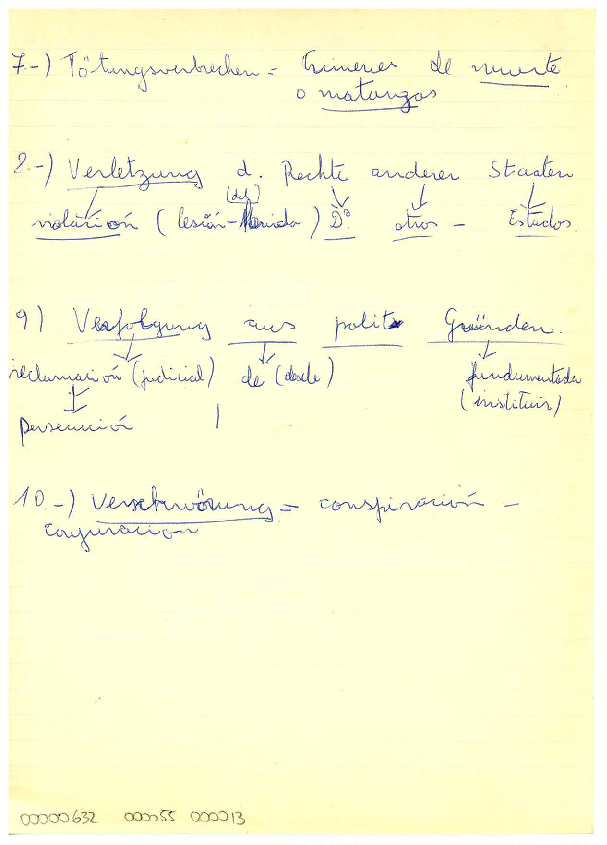 7.-) Tötungsverbrechen = Crimenes de muerte
o matanzas
8.-) Verletzung d. Rechte anderer Staaten
(del)
violación (lesión - herida) Dº otros - Estados
9) Verfolgung aus polit. Gründen.
reclamación (judicial) de (desde) fundamentada
(instituir)
persecución
10.-) Verschwörung = conspiración -
conjuracion
00000632 000055 000013